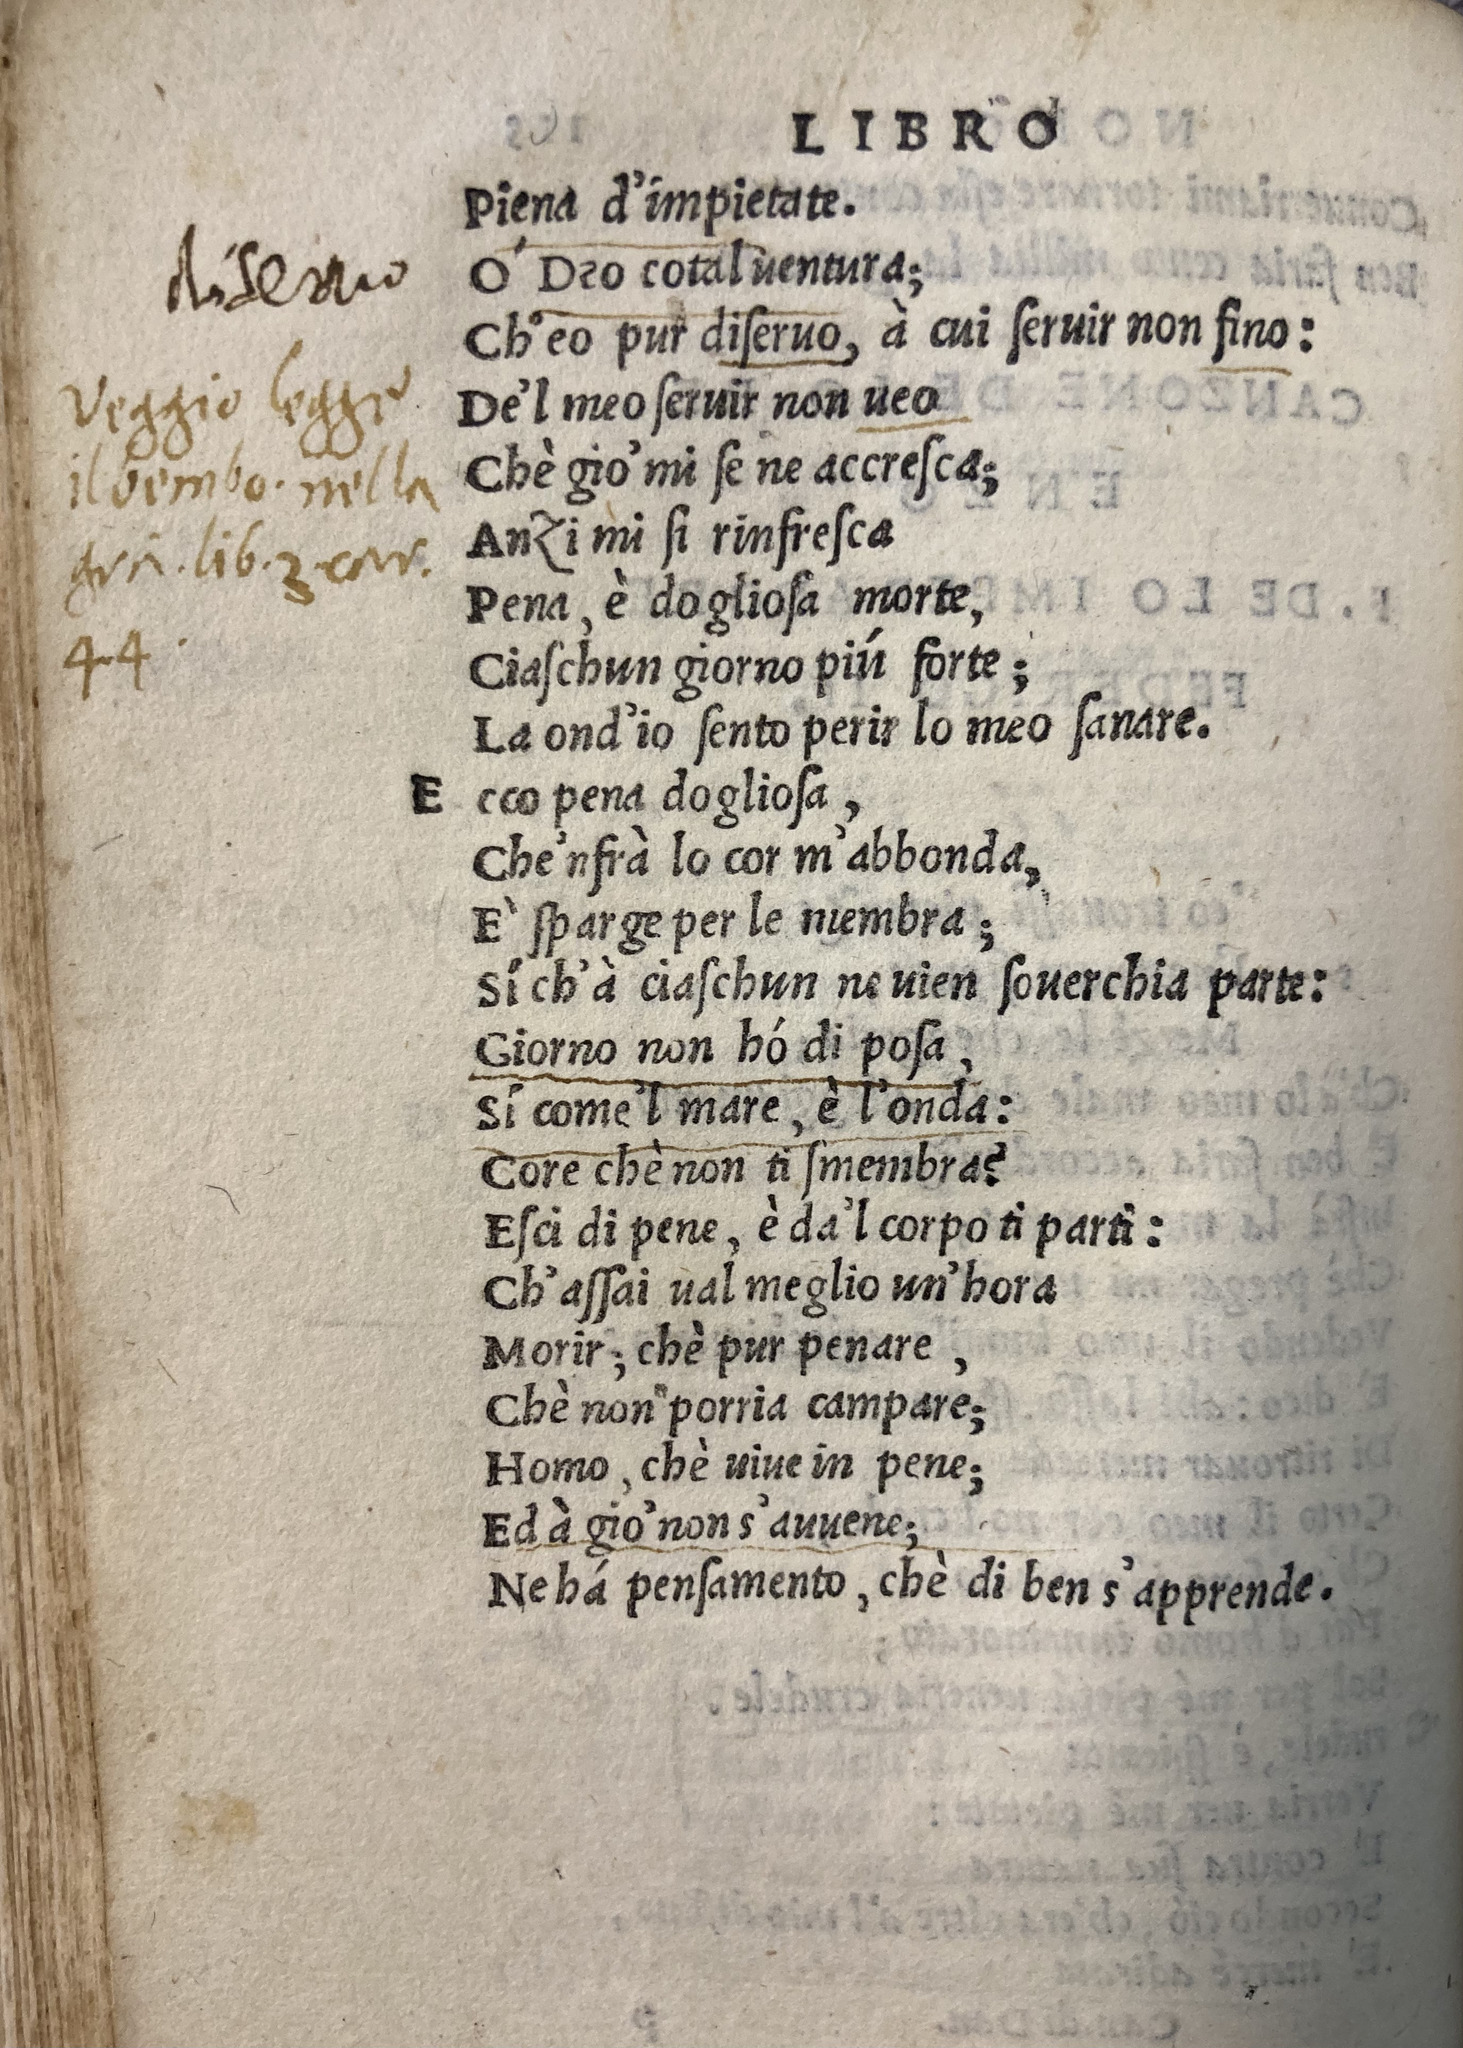 LIBRO
Piena d'impietate.
O' Deo cotal uentura;
Ch'eo pur diſeruo, à cui ſeruir non fino:
De'l meo ſeruir non ueo
Chè gio' mi ſe ne accreſca;
Anzi mi ſi rinfreſca
Pena, è doglioſa morte,
Ciaſchun giorno piú forte;
La ond'io ſento perir lo meo ſanare.
E cco pena doglioſa,
Che'nfrà lo cor m'abbonda,
E' ſparge per le membra;
Sí ch'à ciaſchun ne uien ſouerchia parte:
Giorno non hó di poſa,
Sí come'l mare, è l'onda:
Core chè non ti ſmembra?
Eſci di pene, è da'l corpo ti parti:
Ch'aſſai ual meglio un'hora
Morir; chè pur penare,
Chè non porria campare;
Homo, chè uiue in pene;
Ed à gio' non s'auuene;
Ne há penſamento, chè di ben s'apprende.
diſeruo
Veggio legge
il bembo. nella
lib. 3. car.
44.